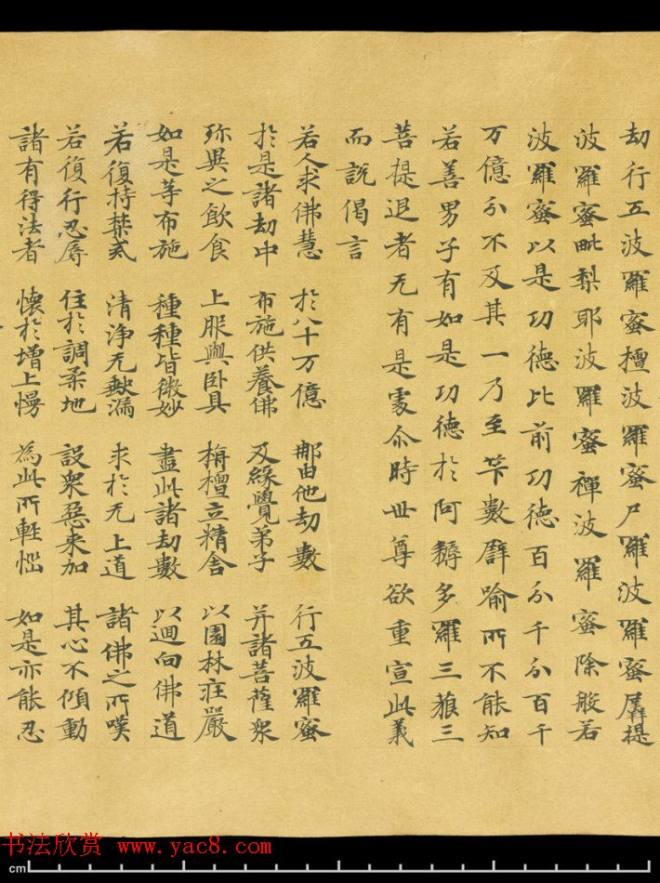 劫行五波羅蜜檀波羅蜜尸羅波羅蜜羼提
波羅蜜毗梨耶波羅蜜禪波羅蜜除般若
波羅蜜以是功德比前功德百分千分百千
万億分不及其一乃至筭數譬喻所不能知
若善男子有如是功德於阿耨多羅三藐三
菩提退者无有是處尒時世尊欲重宣此義
而說偈言
若人求佛慧 於八十万億 那由他劫數 行五波羅蜜
於是諸劫中 布施供養佛 及緣覺弟子 并諸菩薩衆
珎異之飲食 上服與卧具 栴檀立精舍 以園林莊嚴
如是等布施 種種皆微妙 盡此諸劫數 以迴向佛道
若復持禁戒 清淨无缺漏 求於无上道 諸佛之所嘆
若復行忍辱 住於調柔地 設衆惡來加 其心不傾動
諸有得法者 懷於增上慢 為此所輕惱 如是亦能忍
书法欣赏 www.yac8.com
cm